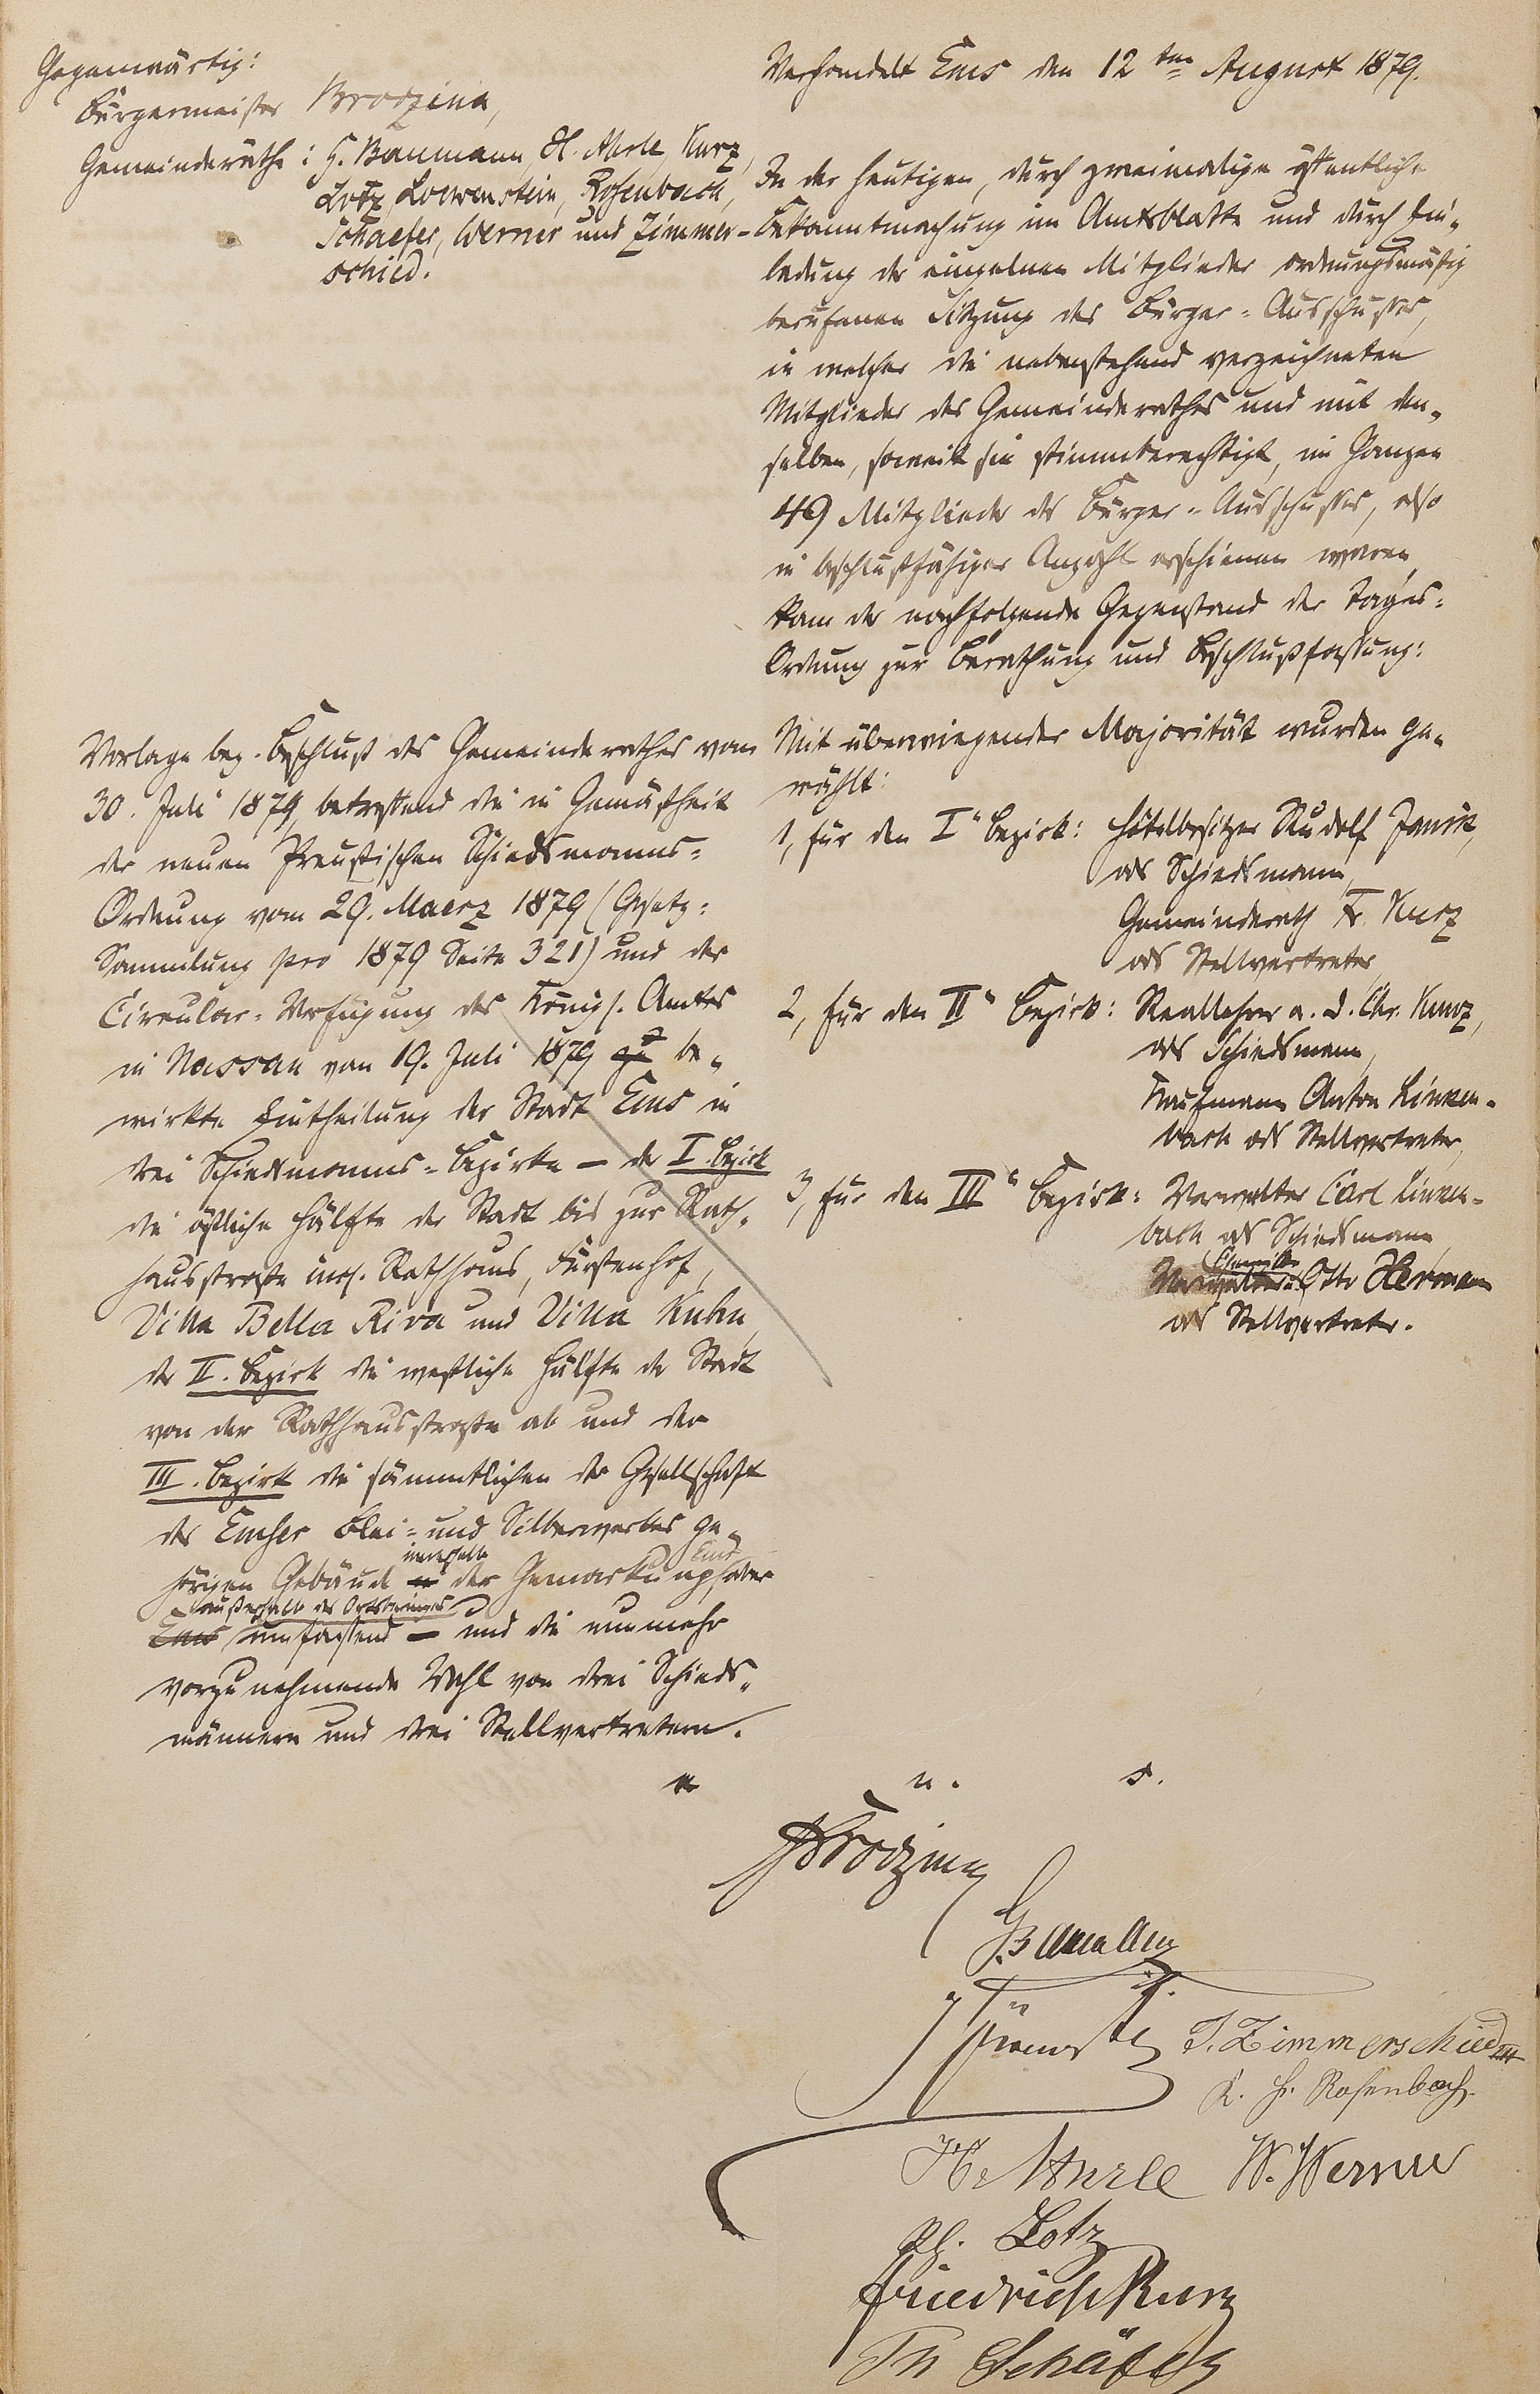 Gegenwärtig:
Bürgermeister Brodzina,
Gemeinderäthe: H. Baumann, H. Ahrle, Kurz,
Lotz, Loewenstein, Rosenbach,
Schaefer, Werner und Zimmer-
schied.
Verhandelt Ems den 12ten August 1879.
In der heutigen, durch zweimalige öffentliche
Bekanntmachung im Amtsblatte und durch Ein-
ladung der einzelnen Mitglieder ordnungsmäßig
berufenen Sitzung des Bürger-Ausschusses,
in welcher die nebenstehend verzeichneten
Mitglieder des Gemeinderathes und mit den-
selben, soweit sie stimmberechtigt, im Ganzen
49 Mitglieder des Bürger-Ausschusses, also
in beschlußfähiger Anzahl erschienen waren,
kam der nachfolgende Gegenstand der Tages-
Ordnung zur Berathung und Beschlußfassung:
Vorlage bez. Beschluß des Gemeinderathes vom
30. Juli 1879, betreffend die in Gemäßheit
der neuen Preußischen Schiedsmanns-
Ordnung vom 29. Maerz 1879 (Gesetz-
Sammlung pro 1879 Seite 321) und der
Circular-Verfügung des Königl. Amtes
in Nassau vom 19. Juli 1879 be-
wirkte Eintheilung der Stadt Ems in
drei Schiedsmanns-Bezirke — der I. Bezirk
die östliche Hälfte der Stadt bis zur Rath-
hausstraße incl. Rathhaus, Fürstenhof,
Villa Bella Riva und Villa Kuhn,
der II. Bezirk die westliche Hälfte der Stadt
von der Rathhausstraße ab und der
III. Bezirk die sämmtlichen der Gesellschaft
des Emser Blei- und Silberwerkes ge-
hörigen Gebäude innerhalb der Gemarkung Ems, aber
außerhalb des Ortsberinges umfassend — und die nunmehr
vorzunehmende Wahl von drei Schieds-
männern und drei Stellvertretern.
Mit überwiegender Majorität wurden ge-
wählt:
1, für den I" Bezirk: Hôtelbesitzer Rudolf Janik,
als Schiedsmann,
Gemeinderath Fr. Kurz
als Stellvertreter,
2, für den II" Bezirk: Reallehrer a. D. Chr. Kunz,
als Schiedsmann,
Kaufmann Anton Linken-
bach als Stellvertreter,
3, für den III" Bezirk: Verwalter Carl Linken-
bach als Schiedsmann,
Chemiker Otto Hermann
als Stellvertreter.
u. s.
Brodzina
Baumann
J. Zimmerschied III
K. H. Rosenbach.
H. Ahrle W. Werner
Ph. Lotz
Friedrich Kurz
Th Schäfer